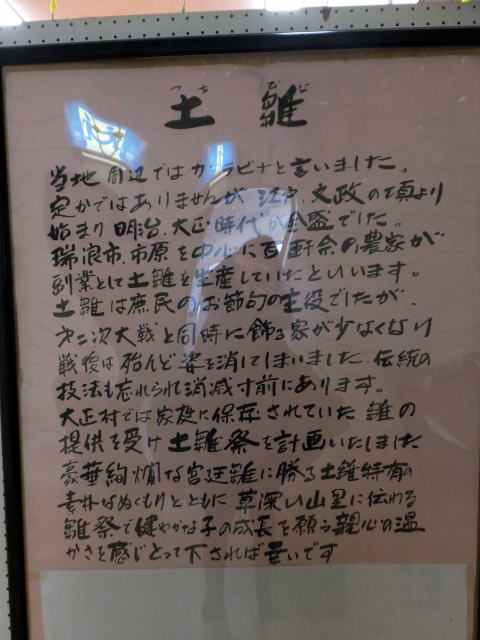 つち びな
土雛
当地周辺ではカワラビナと言いました。
定かではありませんが江戸、文政の頃より
始まり明治、大正時代が全盛でした。
瑞浪市、市原を中心に百軒余の農家が
副業として土雛を生産していたといいます。
土雛は庶民のお節句の主役でしたが、
才二次大戦と同時に飾る家が少なくなり
戦後は殆んど姿を消してしまいました、伝統の
技法も忘れられ消滅寸前にあります。
大正村では家庭に保存されていた雛の
提供を受け土雛祭を計画いたしました
豪華絢爛な宮廷雛に勝る土雛特有の
素朴なぬくもりとともに草深い山里に伝わる
雛祭で健やかな子の成長を願う親心の温
かさを感じとって下されば幸いです